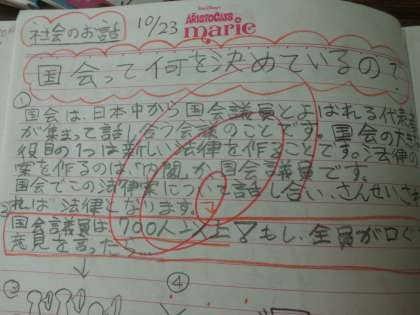 社会のお話
10/23
Walt Disney's
ARISTOCATS
marie
国会って何を決めているの?
①
国会は、日本中から国会議員とよばれる代表
が集まって話し合う会議のことです。国会の大き
役目の1つは新しい法律を作ることです。法律の
案を作るのは、内閣か国会議員です。
国会でこの法律案について話し合い、さんせいされ
れば法律となります。
国会議員は700人以上!もし、全員が口ぐ
意見を言ったら…
④